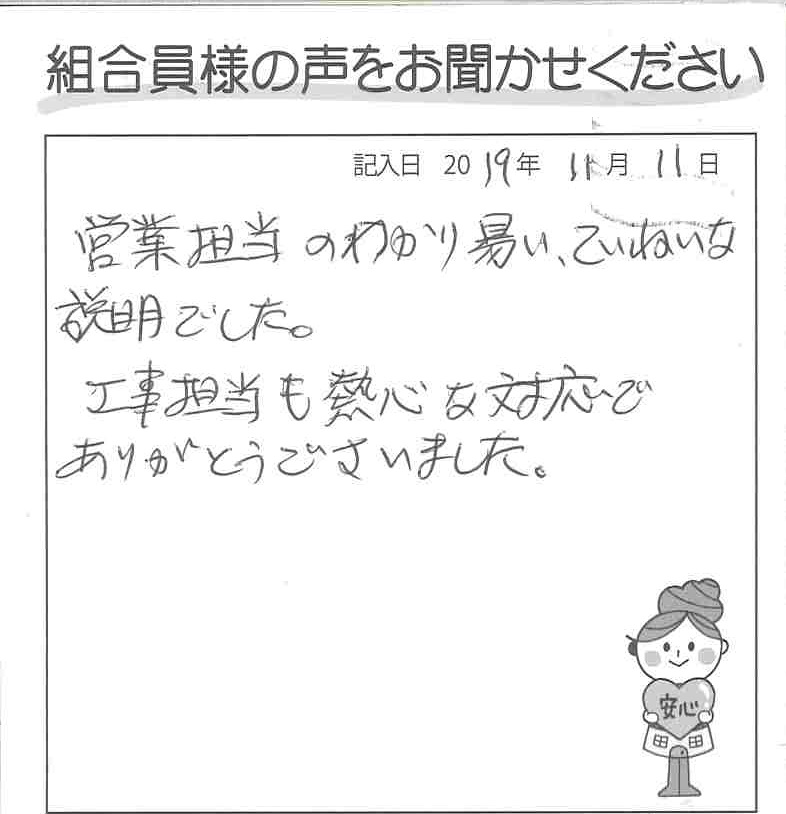 組合員様の声をお聞かせください
記入日 2019年 11月 11日
営業担当のわかり易い、ていねいな
説明でした。
工事担当も熱心な対応で
ありがとうございました。
安心